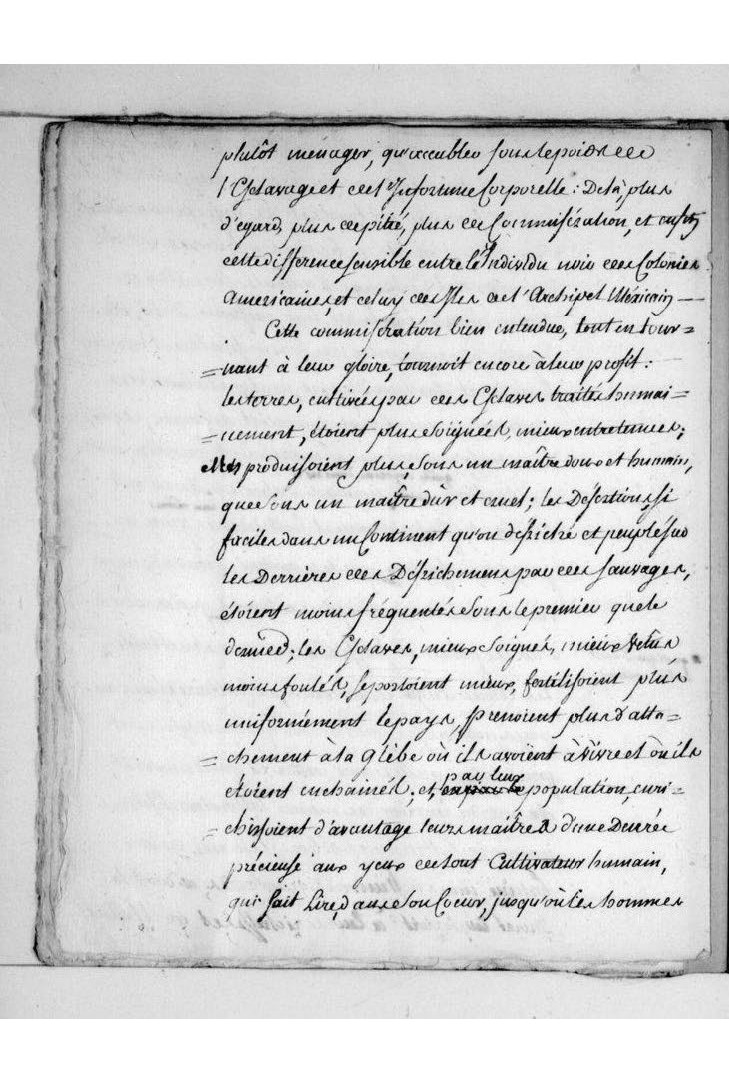 plutôt ménager, qu'accabler sous le poids de
l'Esclavage et de l'Infortune Corporelle : De là, plus
d'egard, plus de pitié, plus de Commisération, et enfin
cette difference sensible entre l'Individu noir des Colonies
Americaines, et celuy des Isles de l'Archipel Méxicain —
Cette commisération bien entendue, tout en tour=
=nant à leur gloire, tournoit encore à leur profit :
les terres, cultivées par des Esclaves traités humai=
=nement, étoient plus Soignées, mieux entretenues ;
Elles produisoient plus, sous un maître doux et humain,
que sous un maître dûr et cruel ; les Désertions, si
faciles dans un Continent qu'on défriche et peuplé sur
les Derrières des Défrichemens par des Sauvages,
étoient moins fréquentes sous le premier que le
dernier ; les Esclaves, mieux Soignés, mieux vêtus
moins foulés, se portoient mieux, fertilisoient plus
uniformément le pays, prenoient plus d'atta=
=chement à la Glèbe où ils avoient à vivre et où ils
étoient enchainés ; et, par leur population, enri=
=chissoient d'avantage leurs maîtres d'une Denrée
précieuse aux yeux de tout Cultivateur humain,
qui sait Lire, dans son Coeur, jusqu'où les hommes